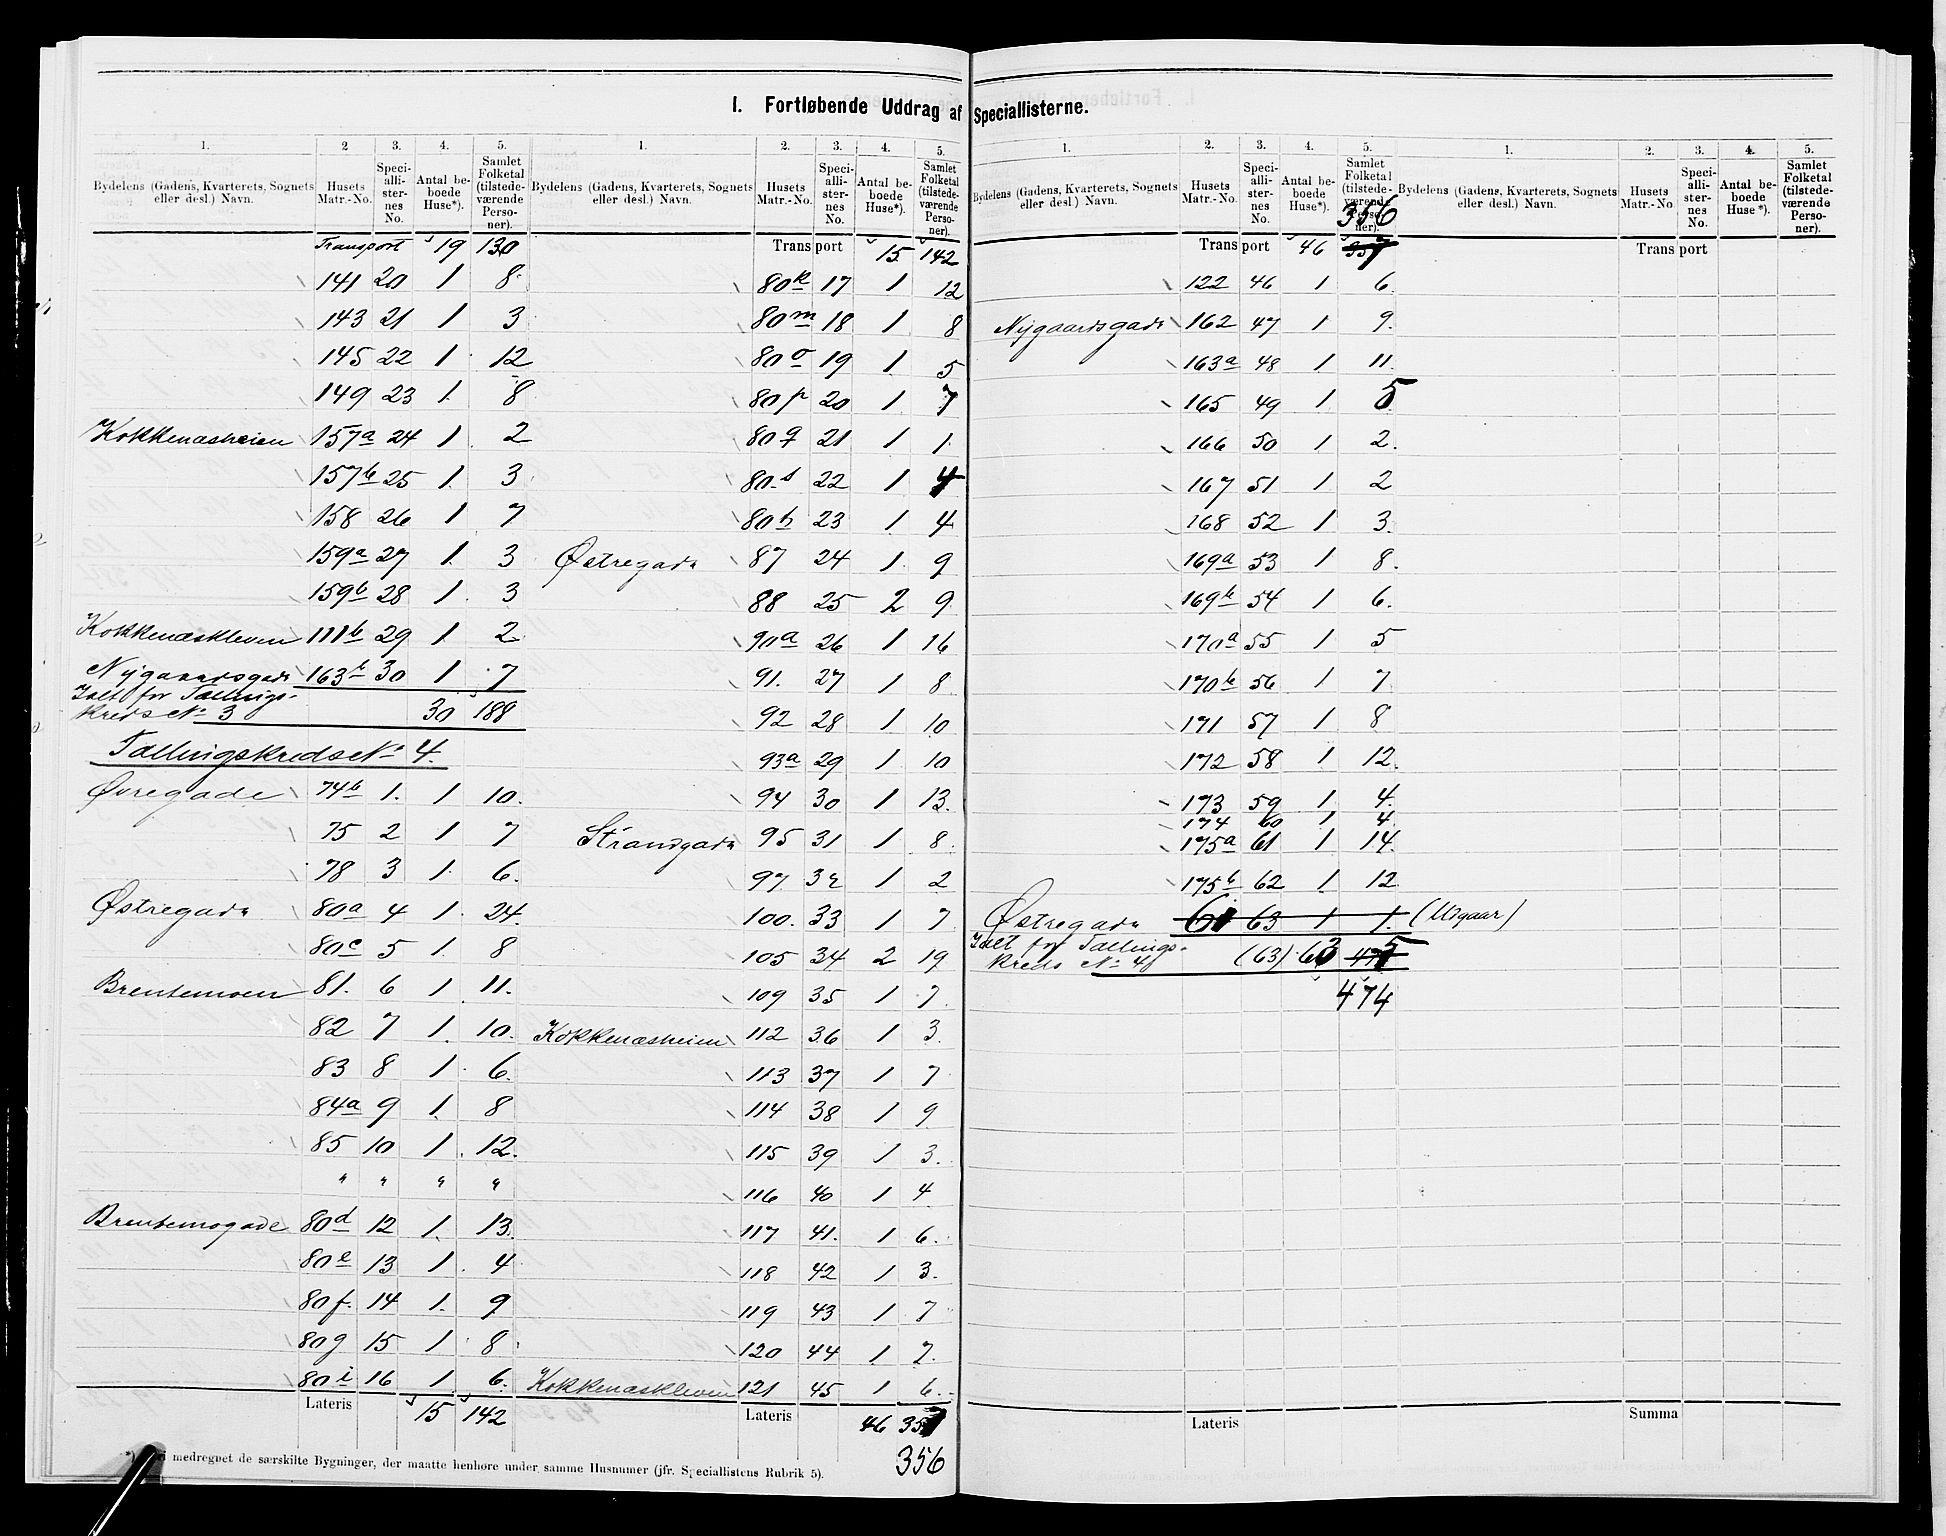 I. Fortløbende Uddrag af Speciallisterne.
1. 2 3. 4. 5.
Bydelens (Gadens, Kvarterets, Sognets eller desl.) Navn. Husets Matr.-No. Specialli-sternes No. Antal beboede Huse*). Samlet Folketal (tilstedeværende Personer).
Transport 19 130
141 20 1 8
143 21 1 3
145 22 1 12
149 23 1 8
Kokkenæsheien 157a 24 1 2
157b 25 1 3
158 26 1 7
159a 27 1 3
159b 28 1 3
Kokkenæskleven 111b 29 1 2
Nygaardsgade 163b 30 1 7
Ialt for Tællings-
kreds No 3 30 188
Tællingskreds No 4.
Øvregade 74b 1. 1 10.
75 2 1 7
78 3 1. 6.
Østregade 80a 4 1. 24.
80c 5 1. 8
Brentemoen 81. 6 1 11.
82 7 1. 10.
83 8 1. 6.
84a 9 1. 8
85 10 1. 12.
" " " "
Brentemogade 80d 12 1. 13.
80e 13 1. 4
80f. 14 1. 9
80g 15 1 8
80i 16 1 6.
Lateris 15 142
*) Heri medregnet de særskilte Bygninger, der maatte henhøre under samme Husnumer (jfr. Speciallistens Rubrik 5).
1. 2. 3. 4. 5.
Bydelens (Gadens, Kvarterets, Sognets eller desl.) Navn. Husets Matr.-No. Specialli-sternes No. Antal beboede Huse*). Samlet Folketal (tilstedeværende Personer).
Transport 15 142
80k 17 1 12
80m 18 1 8
80o 19 1. 5
80p 20 1 7
80q 21 1 1.
80s 22 1 4
80t 23 1. 4
Østregade 87 24 1. 9
88 25 2 9
90a 26 1 16
91. 27 1 8
92 28 1 10
93a 29 1. 10
94 30 1 13.
Strandgade 95 31 1 8.
97 32 1 2
100. 33 1 7
105 34 2 19
109 35 1 7
Kokkenæsheien 112 36 1 3.
113 37 1 7
114 38 1 9
115 39 1 3.
116 40 1 4
117 41. 1 6.
118 42 1 3.
119 43 1 7
120 44 1 7.
Kokkenæskleven 121 45 1 6.
Lateris 46 357
356
1. 2. 3. 4. 5.
Bydelens (Gadens, Kvarterets, Sognets eller desl.) Navn. Husets Matr.-No. Specialli-sternes No. Antal beboede Huse*). Samlet Folketal (tilstedeværende Personer).
356
Transport 46 357
122 46 1 6.
Nygaardsgade 162 47 1 9.
163a 48 1. 11.
165 49 1 5
166 50 1 2.
167 51 1 2
168 52 1 3.
169a 53 1 8.
169b 54 1 6.
170a 55 1 5
170b 56 1 7
171 57 1 8
172 58 1 12.
173 59 1 4.
174 60 1 4
175a 61 1 14.
175b 62 1. 12
Østregade 61 63 1 1. (Udgaar)
Ialt for Tællings-
kreds No 4 (63) 63 475
474
Lateris
1. 2. 3. 4. 5.
Bydelens (Gadens, Kvarterets, Sognets eller desl.) Navn. Husets Matr.-No. Specialli-sternes No. Antal beboede Huse*). Samlet Folketal (tilstedeværende Personer).
Transport
Summa